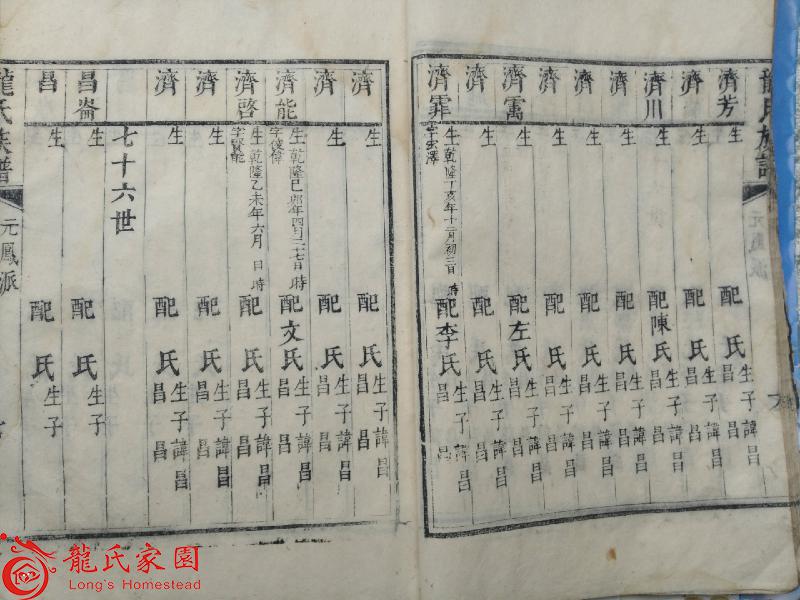 龍氏族譜
元鳳派
濟芳 生 配 氏 生子諱昌 昌 昌
濟 生 配 氏 生子諱昌 昌 昌
濟川 生 配陳氏 生子諱昌 昌 昌
濟 生 配 氏 生子諱昌 昌 昌
濟 生 配 氏 生子諱昌 昌 昌
濟 生 配 氏 生子諱昌 昌 昌
濟寓 生 配左氏 生子諱昌 昌 昌
濟 生 配 氏 生子諱昌 昌 昌
濟霏 生乾隆丁亥年十二月初三日 時 配李氏 生子諱昌 昌 昌
濟 生 配 氏 生子諱昌 昌 昌
濟 生 配 氏 生子諱昌 昌 昌
濟能 生乾隆己卯年四月二十七日 時 字俊偉 配文氏 生子諱昌 昌 昌
濟啓 生乾隆乙未年六月 日 時 字賢能 配 氏 生子諱昌 昌 昌
濟 生 配 氏 生子諱昌 昌 昌
濟 生 配 氏 生子諱昌 昌 昌
七十六世
昌崙 生 配 氏 生子
昌 生 配 氏 生子
龍氏族譜
元鳳派
龍氏家園
Long's Homestead